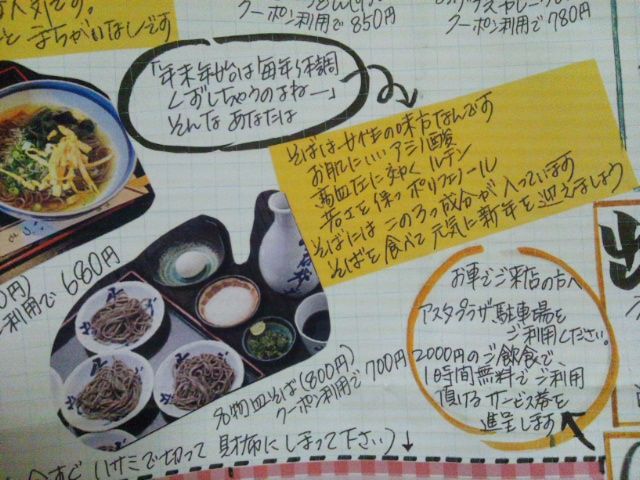 人気です。
まちがいなしです
クーポン利用で 850円
クーポン利用で 780円
「年末年始は毎年体調
くずしちゃうのよねー」
そんなあなたは
そばは女性の味方なんです
お肌にいいアミノ酸
高血圧に効くルチン
若さを保つポリフェノール
そばにはこの3つ成分が入っています
そばを食べて元気に新年を迎えましょう
利用で 680円
名物皿そば(800円)
クーポン利用で 700円
お車でご来店の方へ
アスタプラザ駐車場を
ご利用ください。
2000円のご飲食で、
1時間無料でご利用
頂けるサービス券を
進呈します
ハサミで切って財布にしまって下さい)↓